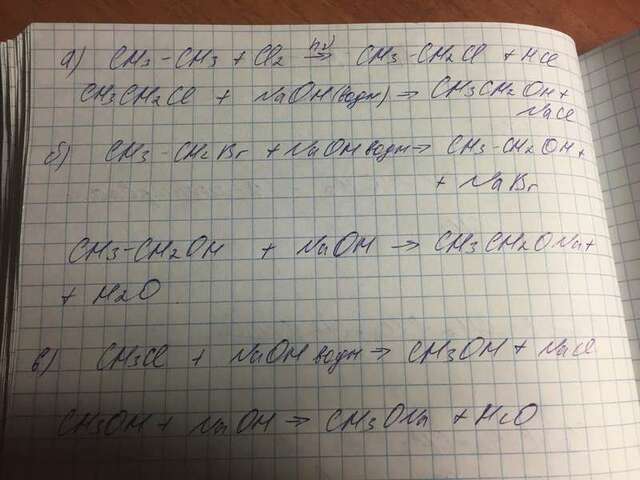 а) CH3-CH3 + Cl2 hν→ CH3-CH2Cl + HCl
CH3CH2Cl + NaOH(водн) → CH3CH2OH +
NaCl
б) CH3-CH2Br + NaOH водн → CH3-CH2OH +
+ NaBr
CH3-CH2OH + NaOH → CH3CH2ONa +
+ H2O
в) CH3Cl + NaOH водн → CH3OH + NaCl
CH3OH + NaOH → CH3ONa + H2O